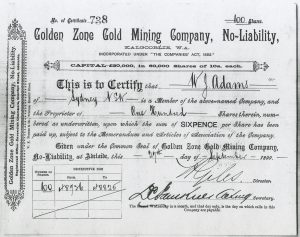 No. of Certificate 728 100 Shares.
Golden Zone Gold Mining Company, No-Liability,
KALGOORLIE, W.A.
INCORPORATED UNDER "THE COMPANIES ACT, 1892."
CAPITAL £30,000, in 60,000 Shares of 10s. each.
This is to Certify that W J Adams
of Sydney N.S.W. is a Member of the above-named Company, and
the Proprietor of One Hundred Shares therein, number-
ed as underwritten, upon which the sum of SIXPENCE per Share has been
paid up, subject to the Memorandum and Articles of Association of the Company.
Given under the Common Seal of Golden Zone Gold Mining Company,
No-Liability at Adelaide, this day of September 189
Giles
Director
Secretary
Number of Shares
DISTINCTIVE NUM
From To
100
Company are payable.
Golden Zone Gold Mining Company, No-Liability.